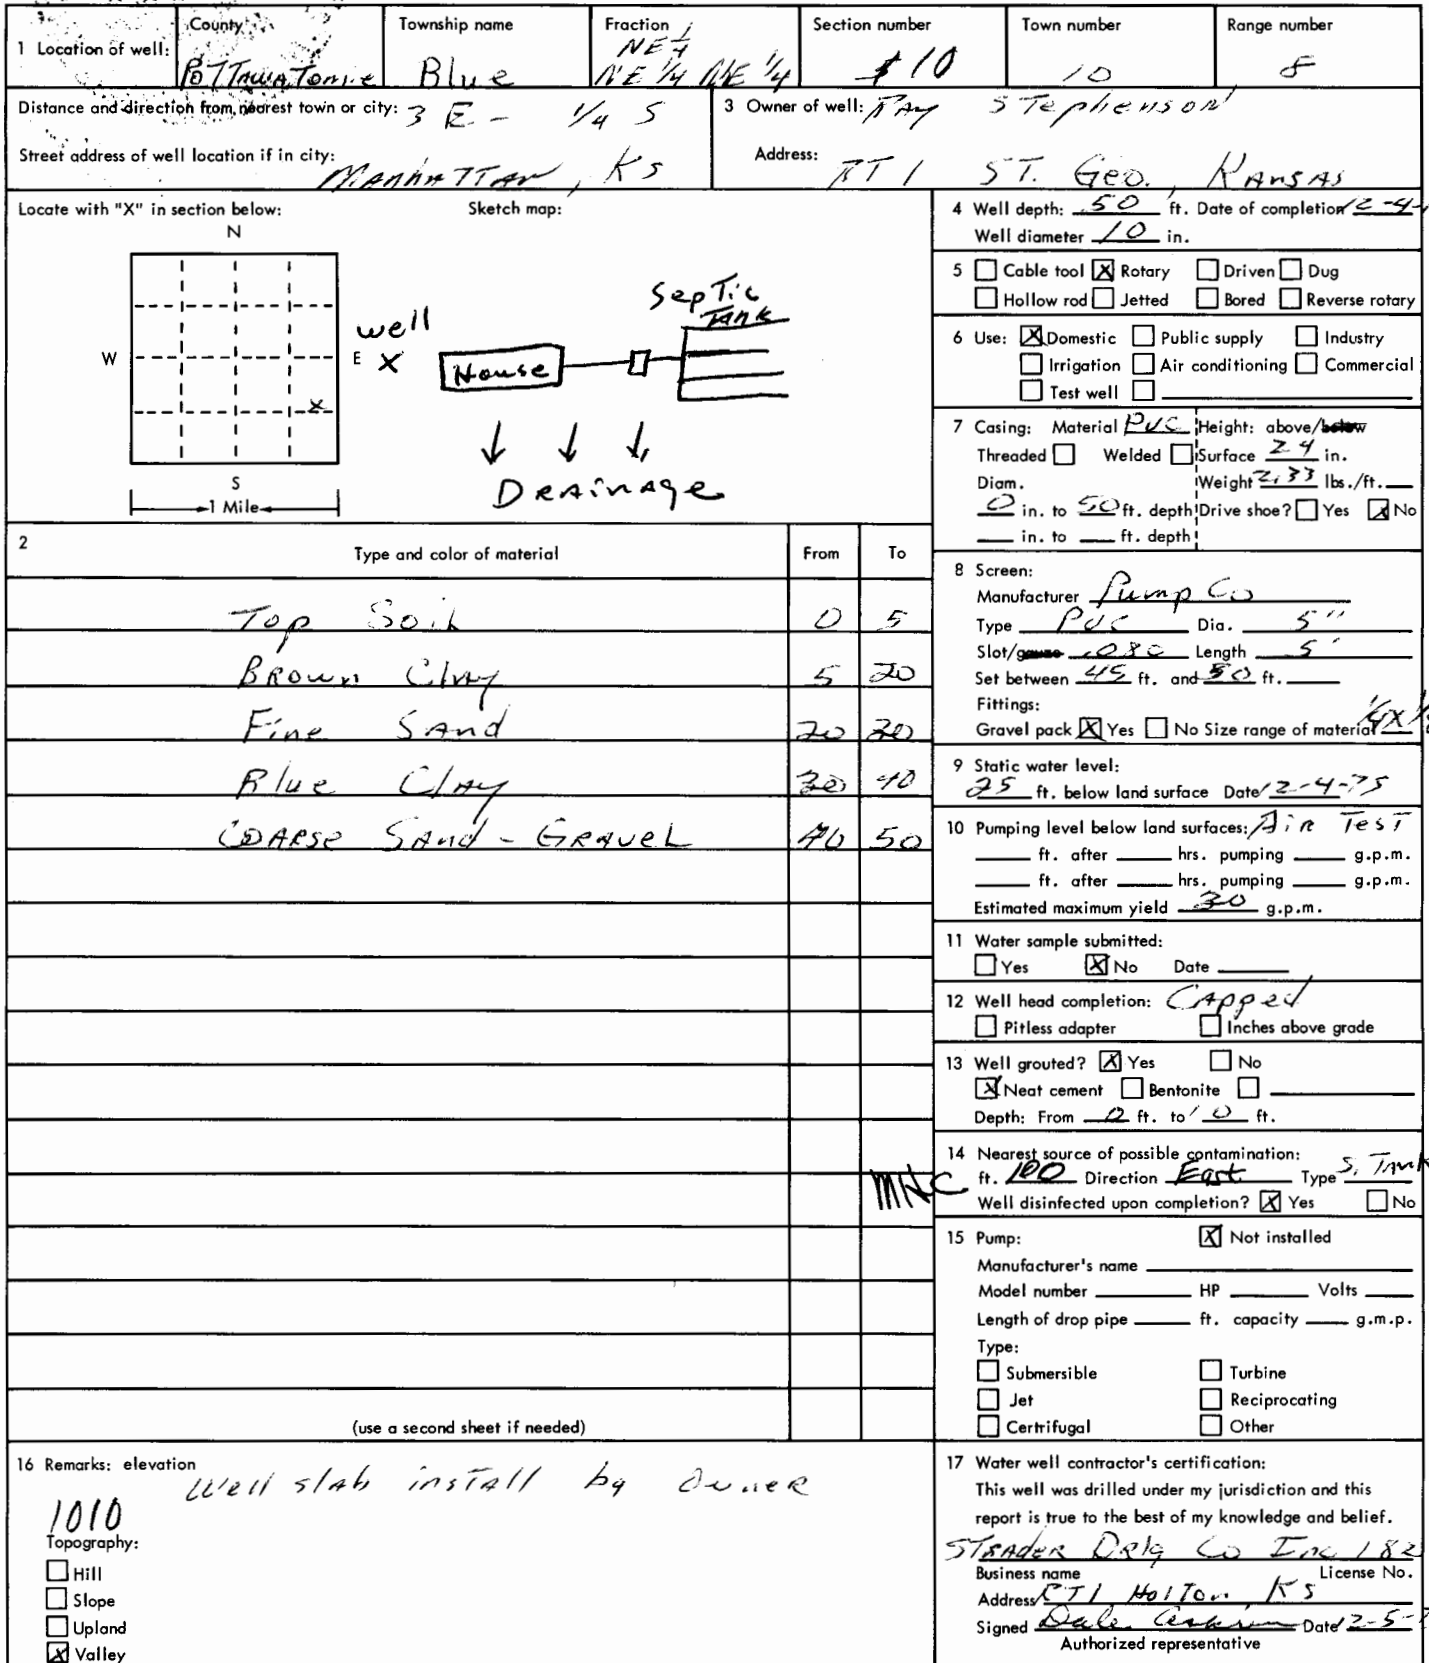 1 Location of well:
County
Pottawatomie
Township name
Blue
Fraction
NE 1/4
NE 1/4 NE 1/4
Section number
10
Town number
10
Range number
8
Distance and direction from nearest town or city: 3 E - 1/4 S
Street address of well location if in city:
Manhattan, Ks
3 Owner of well: Ray Stephenson
Address: RT 1 ST. Geo., Kansas
Locate with "X" in section below:
Sketch map:
N
W
E
S
1 Mile
X
well
X
House
Septic
Tank
Drainage
4 Well depth: 50 ft. Date of completion 12-4-
Well diameter 10 in.
5 Cable tool X Rotary Driven Dug
Hollow rod Jetted Bored Reverse rotary
6 Use: X Domestic Public supply Industry
Irrigation Air conditioning Commercial
Test well
7 Casing: Material PVC Height: above/below
Threaded Welded Surface 24 in.
Diam. Weight 2.33 lbs./ft.
0 in. to 50 ft. depth Drive shoe? Yes X No
in. to ft. depth
2
Type and color of material From To
Top Soil 0 5
Brown Clay 5 20
Fine Sand 20
Blue Clay 40
Coarse Sand - Gravel 40 50
(use a second sheet if needed)
8 Screen:
Manufacturer Pump Co
Type PVC Dia. 5"
Slot/gauze .080 Length 5'
Set between 45 ft. and 50 ft.
Fittings:
Gravel pack X Yes No Size range of material
9 Static water level:
25 ft. below land surface Date 12-4-75
10 Pumping level below land surfaces: Air Test
ft. after hrs. pumping g.p.m.
ft. after hrs. pumping g.p.m.
Estimated maximum yield 30 g.p.m.
11 Water sample submitted:
Yes X No Date
12 Well head completion: Capped
Pitless adapter Inches above grade
13 Well grouted? X Yes No
X Neat cement Bentonite
Depth: From 0 ft. to 10 ft.
14 Nearest source of possible contamination:
ft. 100 Direction East Type S. Tank
Well disinfected upon completion? X Yes No
15 Pump: X Not installed
Manufacturer's name
Model number HP Volts
Length of drop pipe ft. capacity g.m.p.
Type:
Submersible Turbine
Jet Reciprocating
Certrifugal Other
16 Remarks: elevation
Well slab install by Owner
1010
Topography:
Hill
Slope
Upland
X Valley
17 Water well contractor's certification:
This well was drilled under my jurisdiction and this
report is true to the best of my knowledge and belief.
Strader Drlg Co Inc 182
Business name License No.
Address RT1 Holton Ks
Signed Dale Date 12-5-
Authorized representative